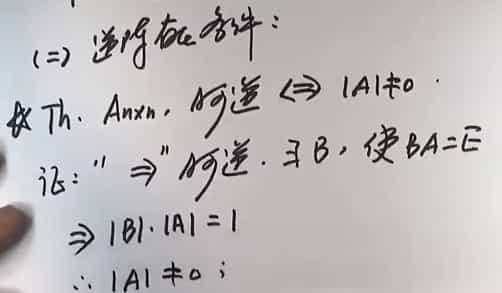 (二) 逆阵存在条件：
★ Th. Anxn, A可逆 ⇔ |A|≠0.
证："⇒" A可逆. ∃B, 使BA=E
⇒ |B|·|A|=1
∴ |A|≠0；